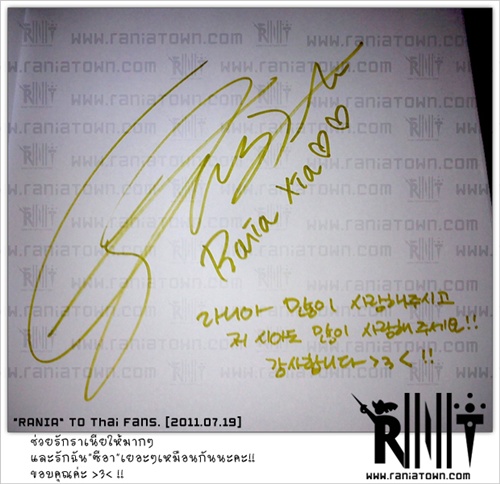 www.raniatown.com
Rania Xia♡♡
라니아 많이 사랑해주시고
저 시아도 많이 사랑해 주세요!!
감사합니다 >3< !!
"RANIA" TO Thai Fans. [2011.07.19]
ช่วยรักราเนียให้มากๆ
และรักฉัน"ซีอา"เยอะๆเหมือนกันนะคะ!!
ขอบคุณค่ะ >3< !!
www.raniatown.com